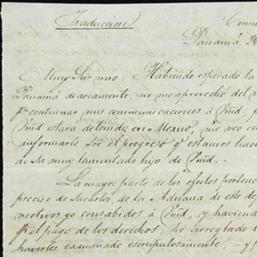 Traduccion
Panamá
Muy Sor mio. Habiendo esperado la
Panamá diariamente, no me aproveché del
pa continuar mis comunicaciones á Vmd,
Vmd estara detenido en Mexico, me veo
informarle sor el progreso qe estamos
de Su muy lamentado hijo de Vmd.
La mayor parte de los efectos
preciso de Sacarlos de la Aduana de este
motivos yo consabidos á Vmd, y haviendo
el pago de los derechos, he arreglado
haverlos examinado escrupulosamente, y